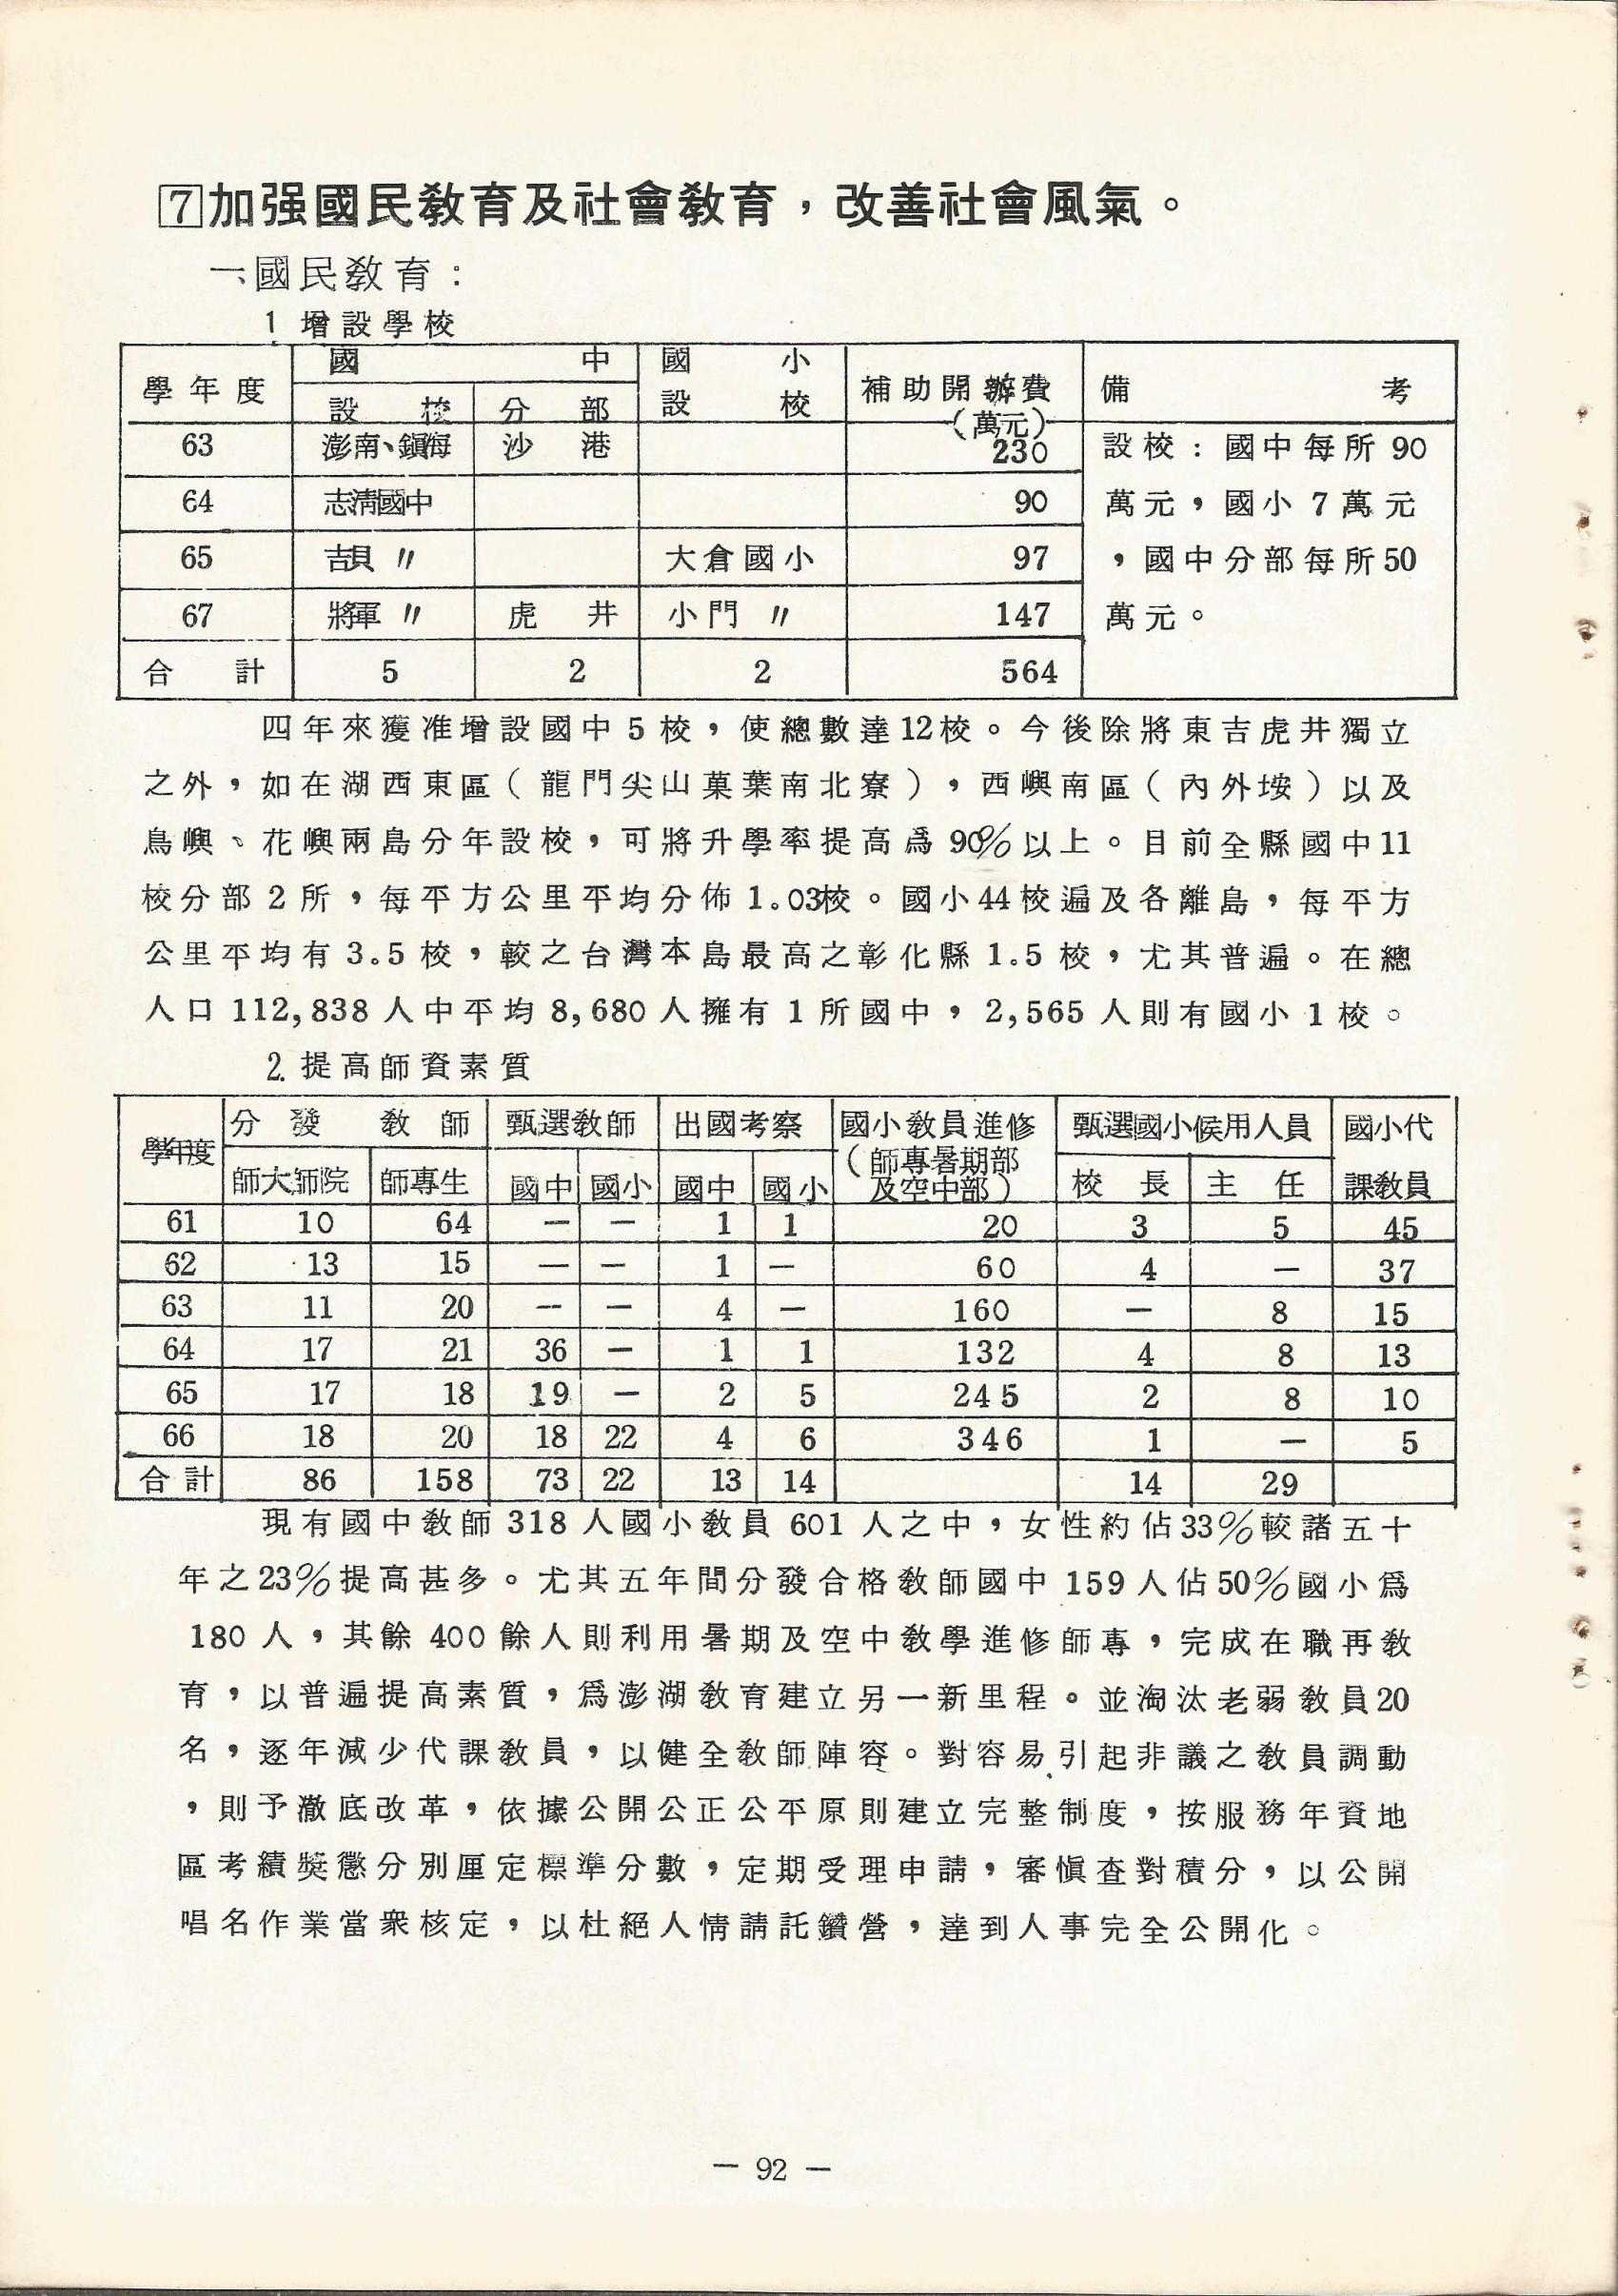 7加强國民教育及社會教育，改善社會風氣。
一、國民教育：
1 增設學校
學年度 國中 國小設校 補助開辦費（萬元） 備考
設校 分部
63 澎南、鎭海 沙港 230 設校：國中每所90
64 志淸國中 90 萬元，國小7萬元
65 吉貝 〃 大倉國小 97 ，國中分部每所50
67 將軍 〃 虎井 小門 〃 147 萬元。
合計 5 2 2 564
四年來獲准增設國中5校，使總數達12校。今後除將東吉虎井獨立
之外，如在湖西東區（龍門尖山菓葉南北寮），西嶼南區（內外垵）以及
鳥嶼、花嶼兩島分年設校，可將升學率提高爲90%以上。目前全縣國中11
校分部2所，每平方公里平均分佈1.03校。國小44校遍及各離島，每平方
公里平均有3.5校，較之台灣本島最高之彰化縣1.5校，尤其普遍。在總
人口112,838人中平均8,680人擁有1所國中，2,565人則有國小1校。
2. 提高師資素質
學年度 分發教師 甄選教師 出國考察 國小教員進修（師專暑期部及空中部） 甄選國小候用人員 國小代課教員
師大師院 師專生 國中 國小 國中 國小 校長 主任
61 10 64 — — 1 1 20 3 5 45
62 13 15 — — 1 — 60 4 — 37
63 11 20 — — 4 — 160 — 8 15
64 17 21 36 — 1 1 132 4 8 13
65 17 18 19 — 2 5 245 2 8 10
66 18 20 18 22 4 6 346 1 — 5
合計 86 158 73 22 13 14 14 29
現有國中教師318人國小教員601人之中，女性約佔33%較諸五十
年之23%提高甚多。尤其五年間分發合格教師國中159人佔50%國小爲
180人，其餘400餘人則利用暑期及空中教學進修師專，完成在職再教
育，以普遍提高素質，爲澎湖教育建立另一新里程。並淘汰老弱教員20
名，逐年減少代課教員，以健全教師陣容。對容易引起非議之教員調動
，則予澈底改革，依據公開公正公平原則建立完整制度，按服務年資地
區考績獎懲分別厘定標準分數，定期受理申請，審愼查對積分，以公開
唱名作業當衆核定，以杜絕人情請託鑽營，達到人事完全公開化。
— 92 —